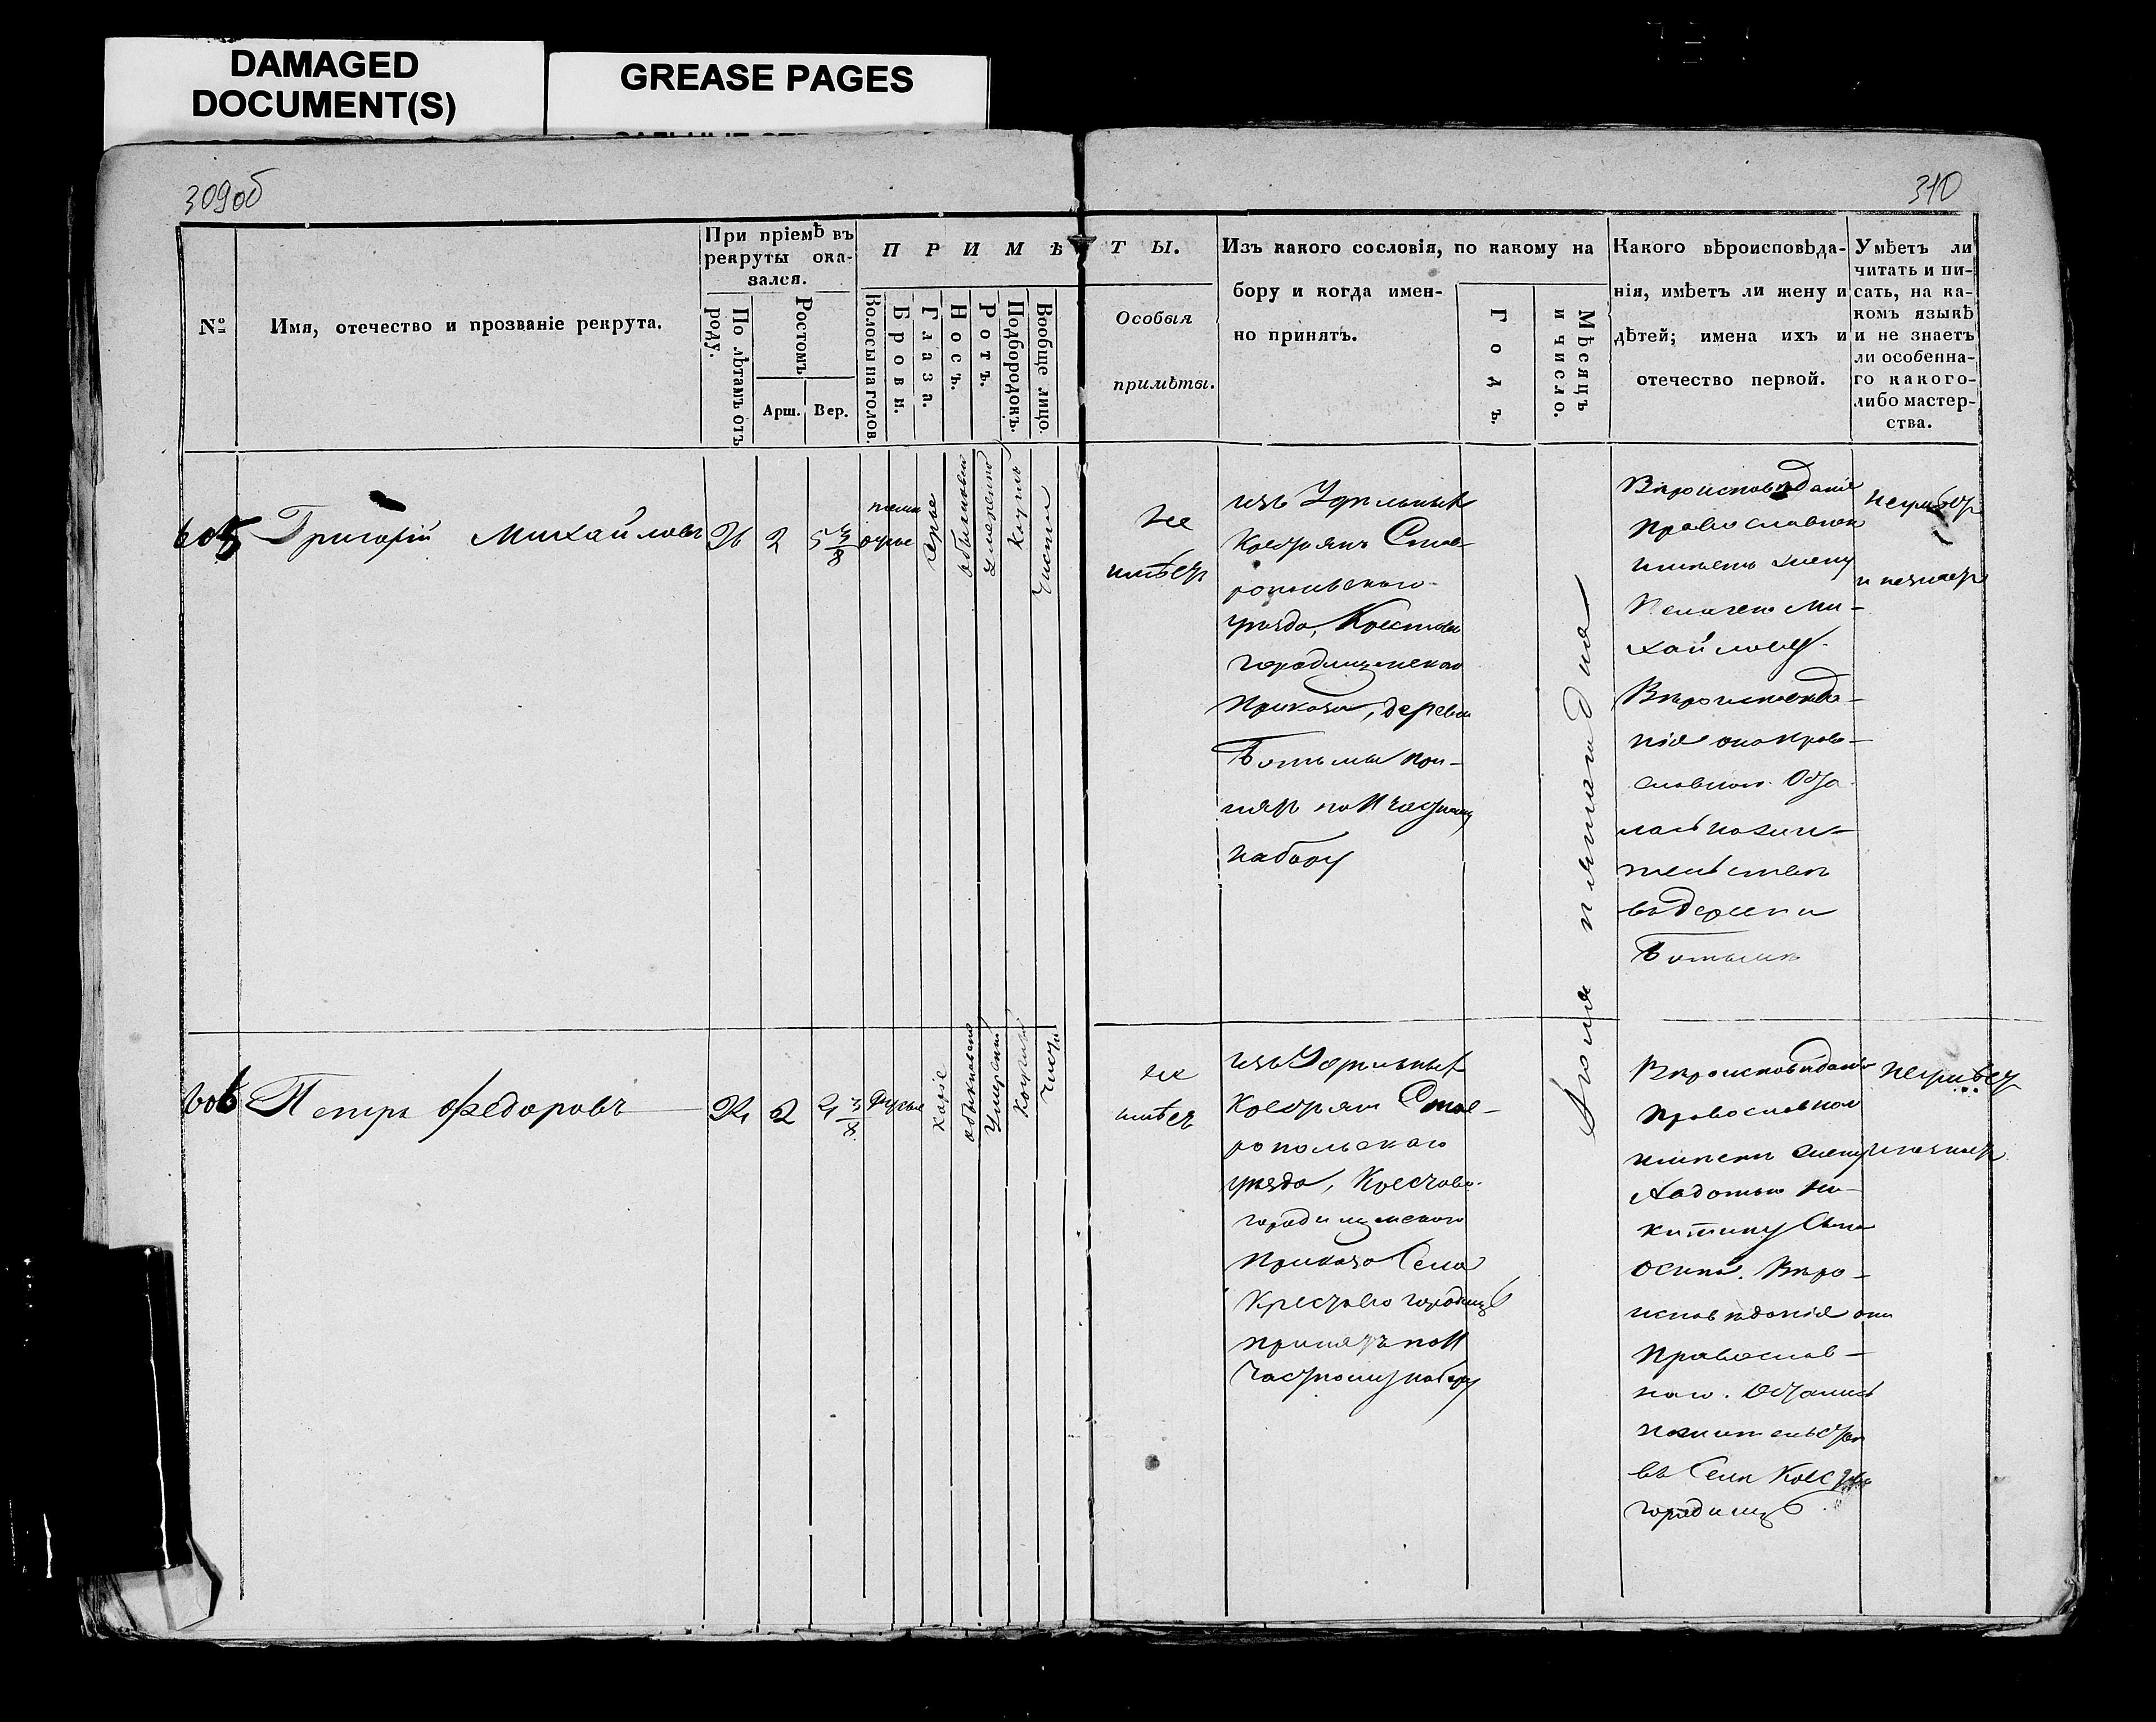 DAMAGED
DOCUMENT(S)
GREASE PAGES
309об
310
№
Имя, отечество и прозваніе рекрута.
При пріемѣ въ
рекруты ока-
зался.
По лѣтамъ отъ
роду.
Ростомъ
Арш.
Вер.
ПРИМѢ
Волосы на голов.
Брови.
Глаза.
Носъ.
Ротъ.
Подбородокъ.
Вообще лицо.
ТЫ.
Особыя
примѣты.
Изъ какого сословія, по какому на
бору и когда имен-
но принятъ.
Годъ.
Мѣсяцъ
и число.
Какого вѣроисповѣда-
нія, имѣетъ ли жену и
дѣтей; имена ихъ и
отечество первой.
Умѣетъ ли
читать и пи-
сать, на ка-
комъ языкѣ
и не знаетъ
ли особенна-
го какого-
либо мастер-
ства.
605
Григорій Михайловъ
26
2
5 3/8
темн
орусые
сѣрые
обыкновен
умеренно
кругл
чистое
не
имѣетъ
изъ Удѣльныхъ
Крестьянъ Став-
ропольскаго
уѣзда, Крестово
городищенскаго
Приказа, деревни
прi-
нятъ по II частному
набору
Іюля пятаго дня
Вѣроисповѣданія
православнаго
имѣетъ жену
Пелагею Ми-
хайлову.
Вѣроисповѣда-
нія она право-
славнаго. Оста
лась на жи-
тельствѣ
въ деревни
неумѣетъ
и незнаетъ
606
Петръ Ѳедоровъ
2
3/8
русые
каріе
обыкновенно
умеренный
круглый
чист
не
имѣетъ
изъ Удѣльныхъ
Крестьянъ Став-
ропольскаго
уѣзда, Крестово-
городищенскаго
Приказа Села
Крестово городищъ
принятъ по II
частному набору
Вѣроисповѣданія
православнаго
имѣетъ жену
Авдотью Ни-
китину Сына
Осипа. Вѣро-
исповѣданія они
православ-
наго. Остались
на жительствѣ
въ Селѣ Крестово
городищѣ
неумѣетъ
и незнаетъ